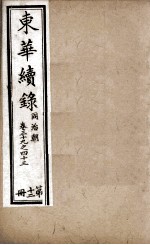 東華續錄
同治朝
卷三十九之四十三
第十二冊